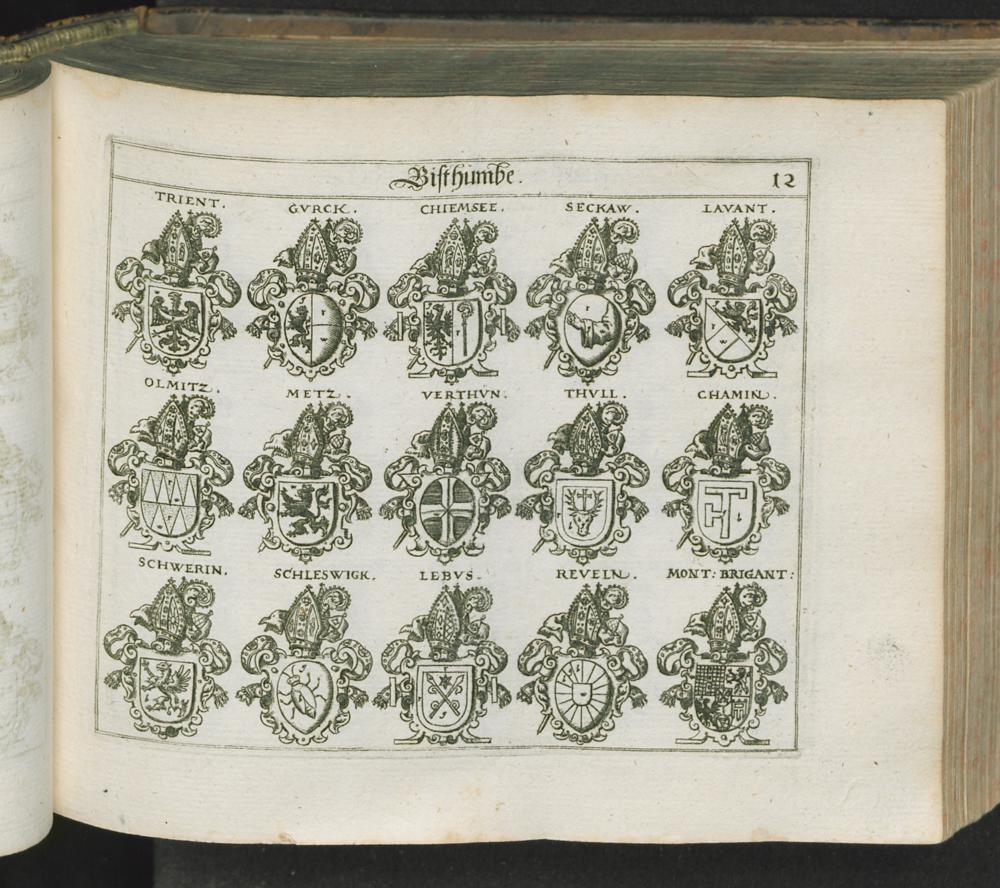 Bisthumbe. 12
TRIENT. GVRCK. CHIEMSEE. SECKAW. LAVANT.
OLMITZ. METZ. VERTHVN. THVLL. CHAMIN.
SCHWERIN. SCHLESWIGK. LEBVS. REVELN. MONT: BRIGANT: